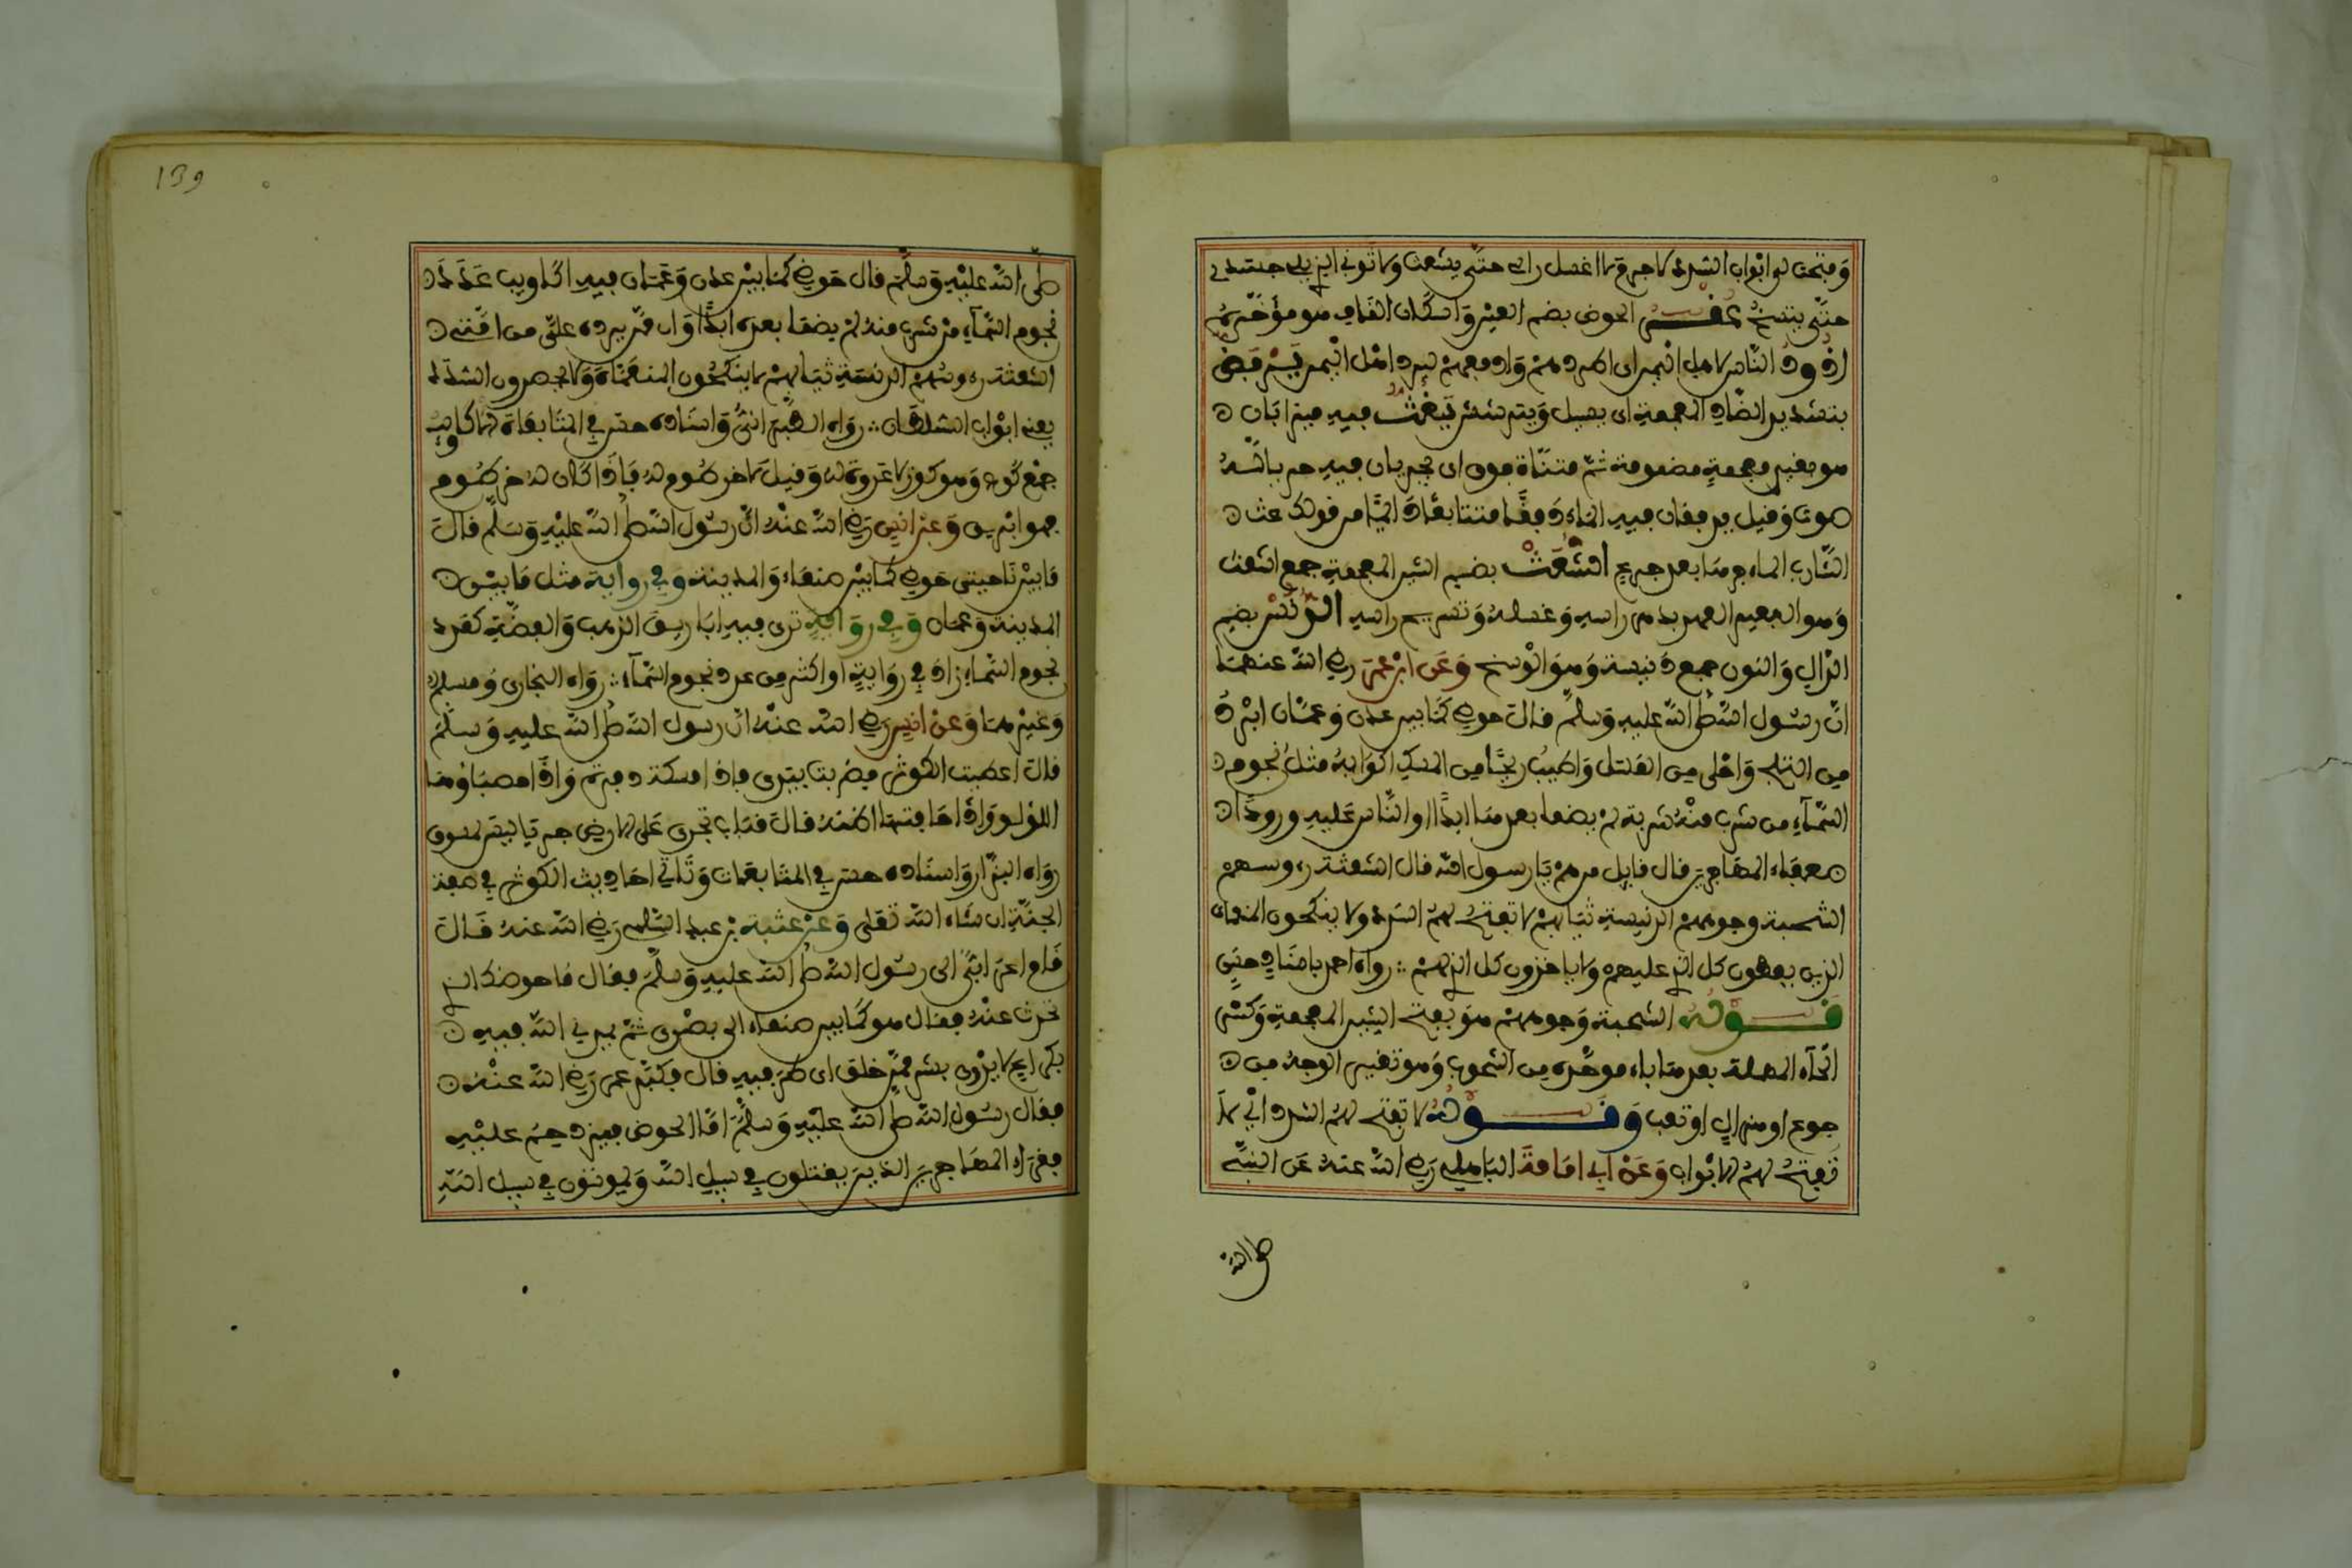 وفتحت لي أبواب السدد لا جرم لا أغسل رأسي حتى يشعث ولا ثوبي الذي يلي جسدي
حتى يتسخ عقر الحوض بضم العين وإسكان القاف هو مؤخره
أذود الناس لأهل اليمن أي أطردهم وأدفعهم ليرد أهل اليمن يرفض
بتشديد الضاد المعجمة أي يسيل ويترشش يغت فيه ميزابان
هو بغين معجمة مضمومة ثم مثناة فوق أي يجريان فيه جريا له
صوت وقيل يدفقان فيه الماء دفقا متتابعا دائما من قولك غت
الشارب الماء جرعا بعد جرع الشعث بضم الشين المعجمة جمع أشعث
وهو البعيد العهد بدهن رأسه وغسله وتسريح رأسه الدنس بضم
الدال والنون جمع دنيسة وهو الوسخ وعن ابن عمر رضي الله عنهما
أن رسول الله صلى الله عليه وسلم قال حوضي كما بين عدن وعمان أبرد
من الثلج وأحلى من العسل وأطيب ريحا من المسك أكوابه مثل نجوم
السماء من شرب منه شربة لم يضمأ بعدها أبدا أول الناس عليه ورودا
صعاليك المهاجرين قال قايل من هم يا رسول الله قال الشعثة رءوسهم
الشحبة وجوههم الدنيسة ثيابهم لا تفتح لهم السدد ولا ينكحون المنعمات
الذين يعطون كل الذي عليهم ولا ياخذون كل الذي لهم رواه أحمد بإسناد حسن
قوله الشحبة وجوههم هو بفتح الشين المعجمة وكسر
الحاء المهملة بعدها باء موحدة من الشحوب وهو تغير الوجه من
جوع أو هزال أو تعب وقوله لا تفتح لهم السدد أي لا
تفتح لهم الأبواب وعن أبي أمامة الباهلي رضي الله عنه عن النبي
صلى الله
139
صلى الله عليه وسلم قال حوضي كما بين عدن وعمان فيه أكاويب عدد
نجوم السماء من شرب منه لم يضمأ بعده أبدا وإن ممن يرده علي من أمتي
الشعثة رءوسهم الدنسة ثيابهم لا ينكحون المنعمات ولا يحضرون السدد
يعني أبواب السلطان رواه الطبراني وإسناده حسن في المتابعات الأكاويب
جمع كوب وهو كوز لا عروة له وقيل لا خرطوم له فإذا كان له خرطوم
فهو إبريق وعن أنس رضي الله عنه أن رسول الله صلى الله عليه وسلم قال
ما بين ناحيتي حوضي كما بين صنعاء والمدينة وفي رواية مثل ما بين
المدينة وعمان وفي رواية ترى فيه أباريق الذهب والفضة كعدد
نجوم السماء زاد في رواية أو أكثر من عدد نجوم السماء رواه البخاري ومسلم
وغيرهما وعن أنس رضي الله عنه أن رسول الله صلى الله عليه وسلم
قال أعطيت الكوثر فضربت بيدي فإذا مسكة ذفرة وإذا حصباؤها
اللؤلؤ وإذا حافتها أظنه قال قباب تجري على الأرض جريا ليس بمشقوق
رواه البزار وإسناده حسن في المتابعات وتأتي أحاديث الكوثر في صفة
الجنة إن شاء الله تعلى وعن عتبة بن عبد السلمي رضي الله عنه قال
قام أعرابي إلى رسول الله صلى الله عليه وسلم فقال ما حوضك الذي
تحدث عنه فقال هو كما بين صنعاء إلى بصرى ثم يمدني الله فيه
بكراع لا يدري بشر ممن خلق أي طرفيه قال فكبر عمر رضي الله عنه
فقال رسول الله صلى الله عليه وسلم أما الحوض فيزدحم عليه
فقراء المهاجرين الذين يقتلون في سبيل الله ويموتون في سبيل الله